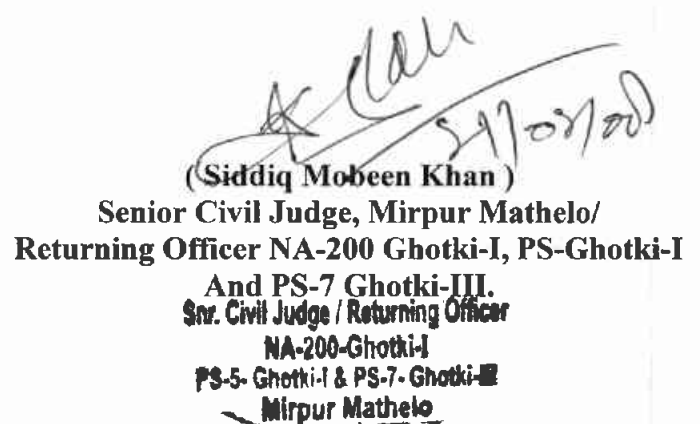 ( Siddiq Mobeen Khan )
Senior Civil Judge, Mirpur Mathelo/
Returning Officer NA-200 Ghotki-I, PS-Ghotki-I
And PS-7 Ghotki-III.
Snr. Civil Judge / Returning Officer
NA-200-Ghotki-I
PS-5- Ghotki-I & PS-7- Ghotki-III
Mirpur Mathelo